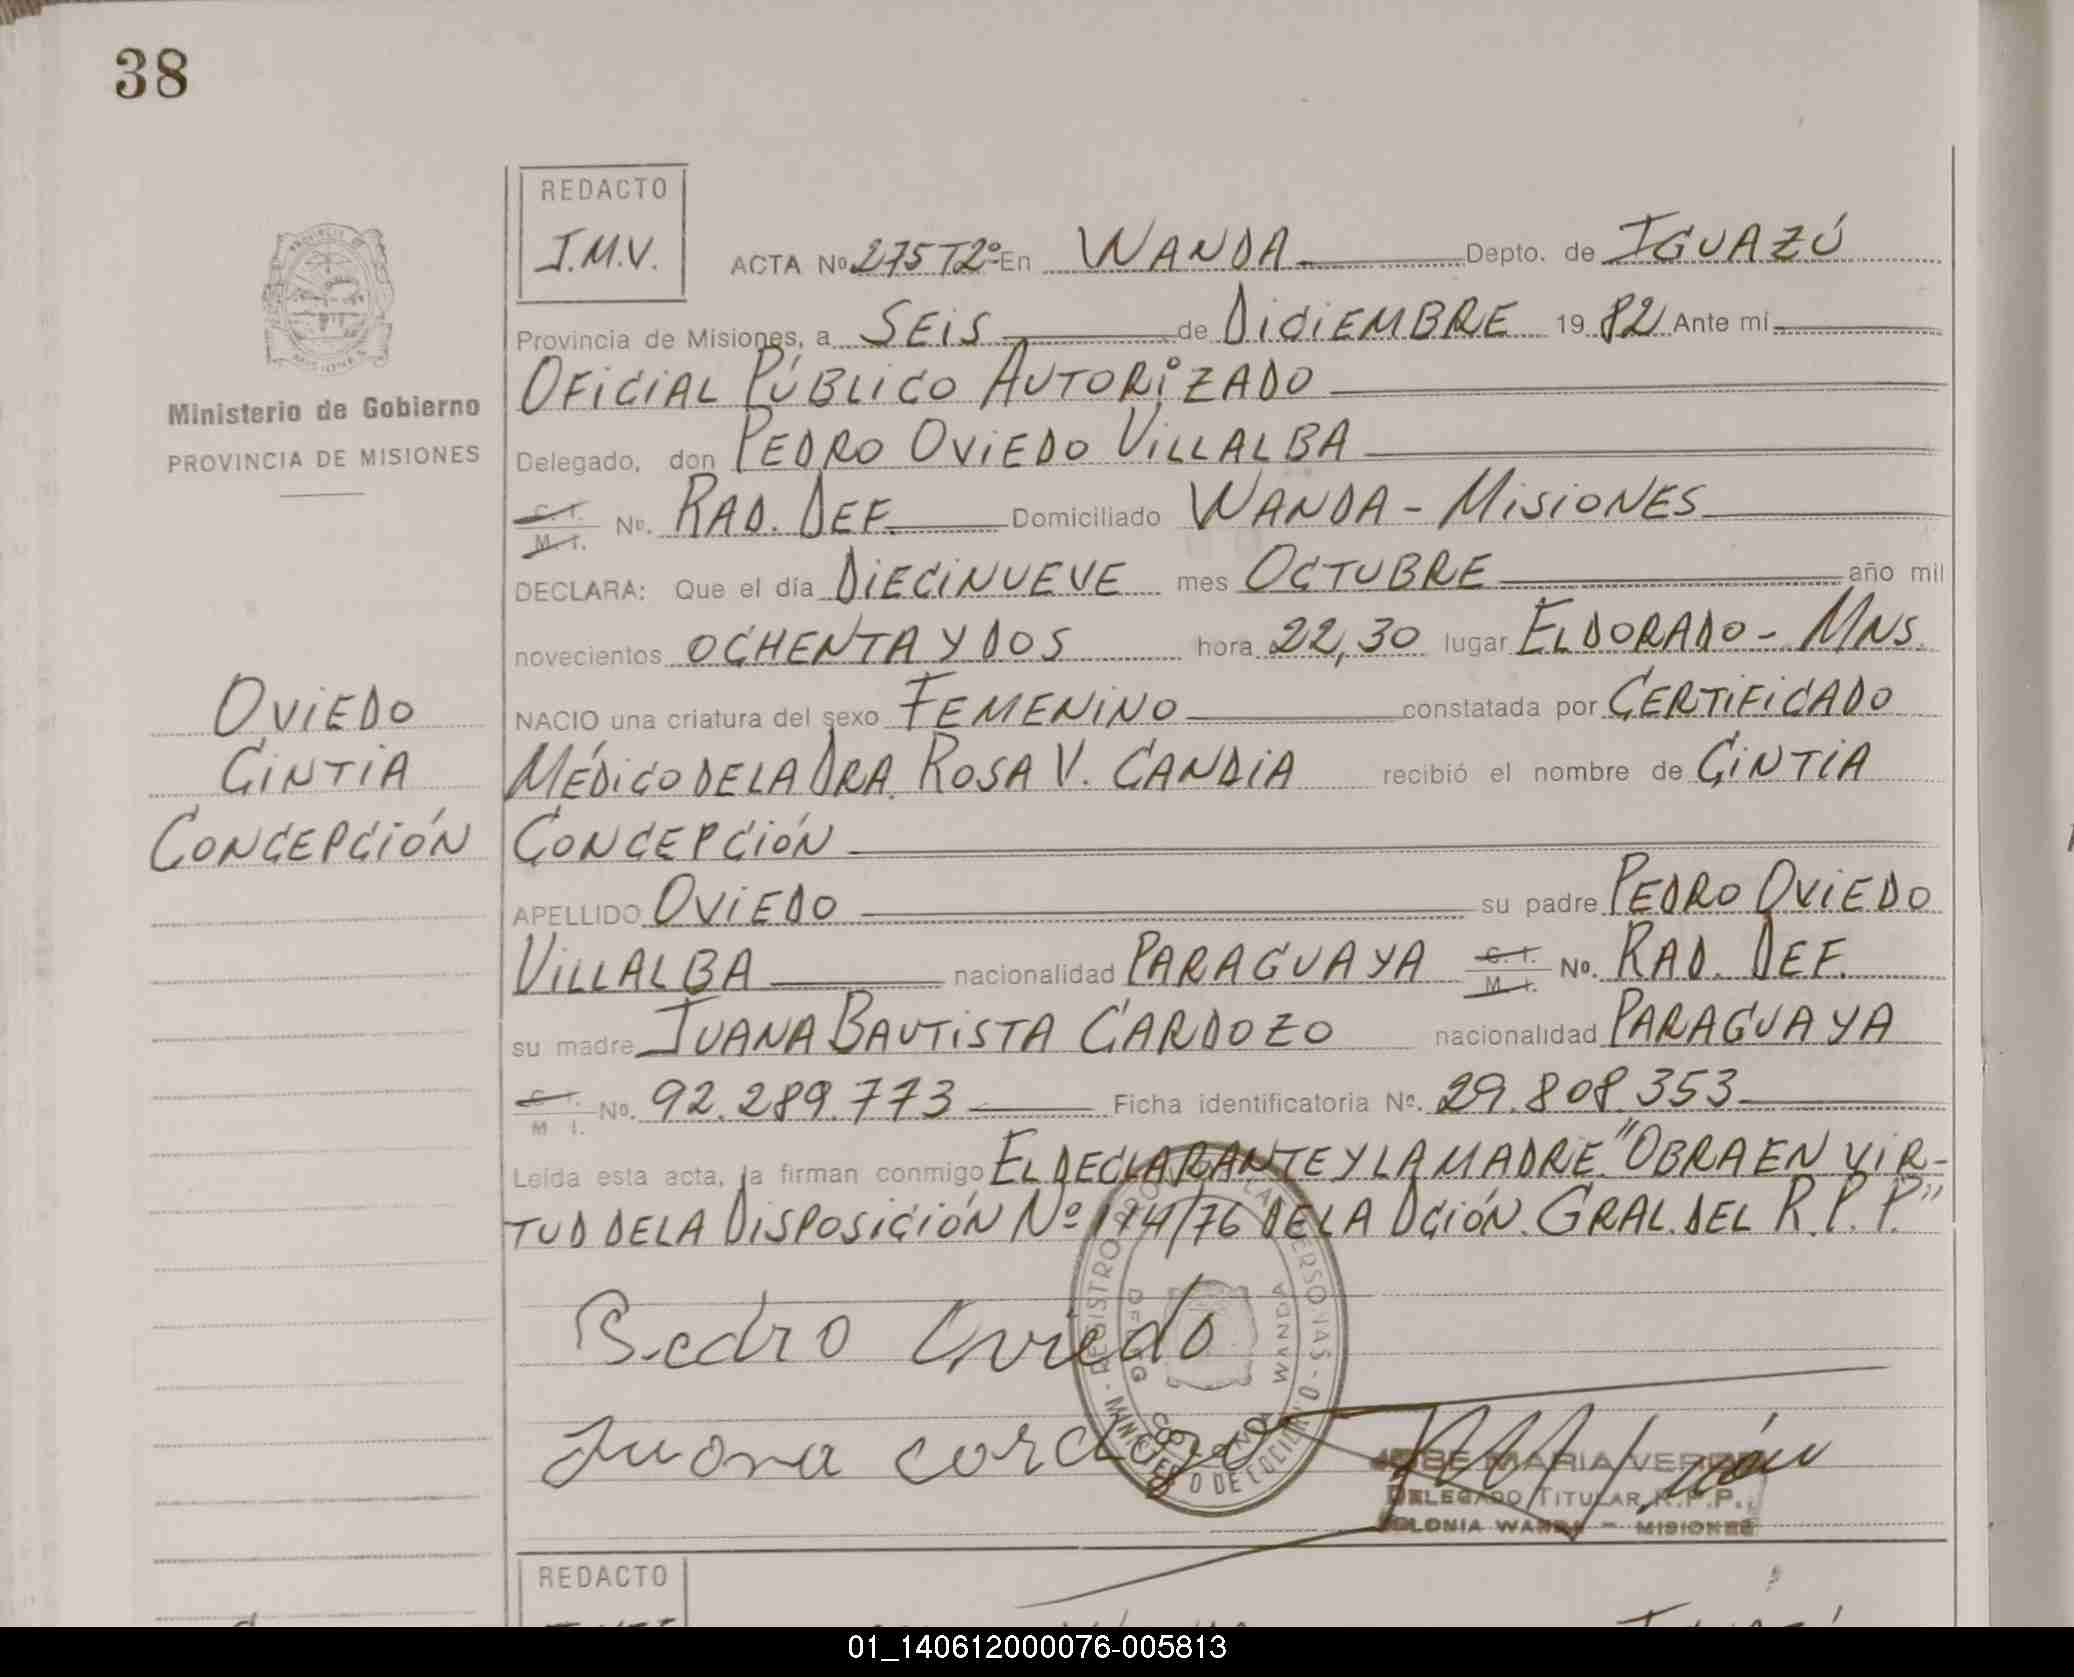 38
REDACTO
J.M.V.
ACTA No 275 T2º En WANDA Depto. de IGUAZÚ
Provincia de Misiones, a SEIS de DICIEMBRE 1982 Ante mí
OFICIAL PÚBLICO AUTORIZADO
Ministerio de Gobierno
PROVINCIA DE MISIONES
Delegado, don PEDRO OVIEDO VILLALBA
C. I. M. I. No. RAD. DEF. Domiciliado WANDA - MISIONES
DECLARA: Que el día DIECINUEVE mes OCTUBRE año mil
novecientos OCHENTA Y DOS hora 22,30 lugar ELDORADO - MNS.
OVIEDO
CINTIA
CONCEPCIÓN
NACIO una criatura del sexo FEMENINO constatada por CERTIFICADO
MÉDICO DE LA DRA. ROSA V. CANDIA recibió el nombre de CINTIA
CONCEPCIÓN
APELLIDO OVIEDO su padre PEDRO OVIEDO
VILLALBA nacionalidad PARAGUAYA C. I. M. I. No. RAD. DEF.
su madre JUANA BAUTISTA CARDOZO nacionalidad PARAGUAYA
C. I. M I. No. 92.289.773 Ficha identificatoria No. 29.808.353
Leída esta acta, la firman conmigo EL DECLARANTE Y LA MADRE. "OBRA EN VIR-
TUD DE LA DISPOSICIÓN Nº 114/76 DE LA DCIÓN. GRAL. DEL R.P.P."
Pedro Oviedo
Juana cardozo
MARIA
DELEGADO TITULAR R.P.P.
COLONIA WANDA - MISIONES
REDACTO
01_140612000076-005813